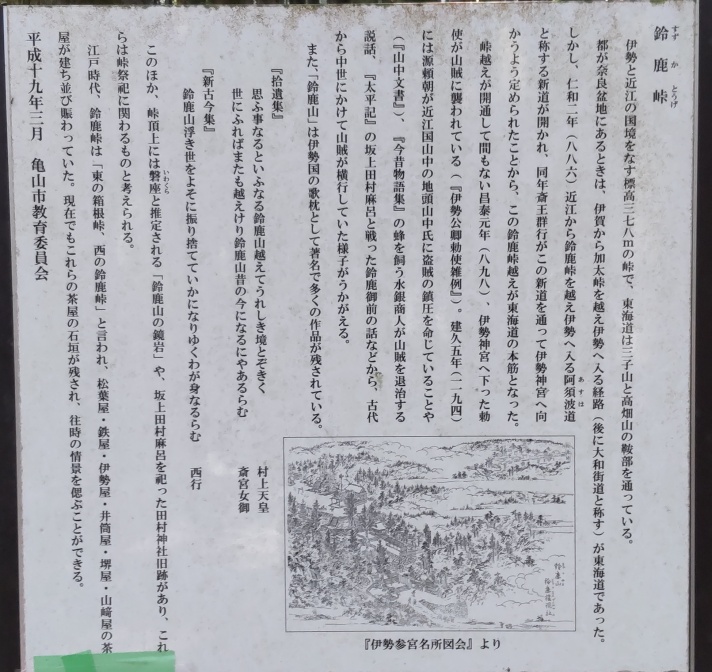 鈴鹿峠
すずかとうげ
伊勢と近江の国境をなす標高三七八ｍの峠で、東海道は三子山と高畑山の鞍部を通っている。
都が奈良盆地にあるときは、伊賀から加太峠を越え伊勢へ入る経路（後に大和街道と称す）が東海道であった。
しかし、仁和二年（八八六）近江から鈴鹿峠を越え伊勢へ入る阿須波道
あすは
と称する新道が開かれ、同年斎王群行がこの新道を通って伊勢神宮へ向
かうよう定められたことから、この鈴鹿峠越えが東海道の本筋となった。
峠越えが開通して間もない昌泰元年（八九八）、伊勢神宮へ下った勅
使が山賊に襲われている（『伊勢公卿勅使雑例』）。建久五年（一一九四）
には源頼朝が近江国山中の地頭山中氏に盗賊の鎮圧を命じていることや
（『山中文書』）、『今昔物語集』の蜂を飼う水銀商人が山賊を退治する
説話、『太平記』の坂上田村麻呂と戦った鈴鹿御前の話などから、古代
から中世にかけて山賊が横行していた様子がうかがえる。
また、「鈴鹿山」は伊勢国の歌枕として著名で多くの作品が残されている。
『拾遺集』
思ふ事なるといふなる鈴鹿山越えてうれしき境とぞきく　村上天皇
世にふればまたも越えけり鈴鹿山昔の今になるにやあるらむ　斎宮女御
『新古今集』
鈴鹿山浮き世をよそに振り捨てていかになりゆくわが身なるらむ　西行
このほか、峠頂上には磐座と推定される「鈴鹿山の鏡岩」や、坂上田村麻呂を祀った田村神社旧跡があり、これ
いわくら
らは峠祭祀に関わるものと考えられる。
江戸時代、鈴鹿峠は「東の箱根峠、西の鈴鹿峠」と言われ、松葉屋・鉄屋・伊勢屋・井筒屋・堺屋・山﨑屋の茶
屋が建ち並び賑わっていた。現在でもこれらの茶屋の石垣が残され、往時の情景を偲ぶことができる。
平成十九年三月　亀山市教育委員会
鈴鹿山
『伊勢参宮名所図会』より